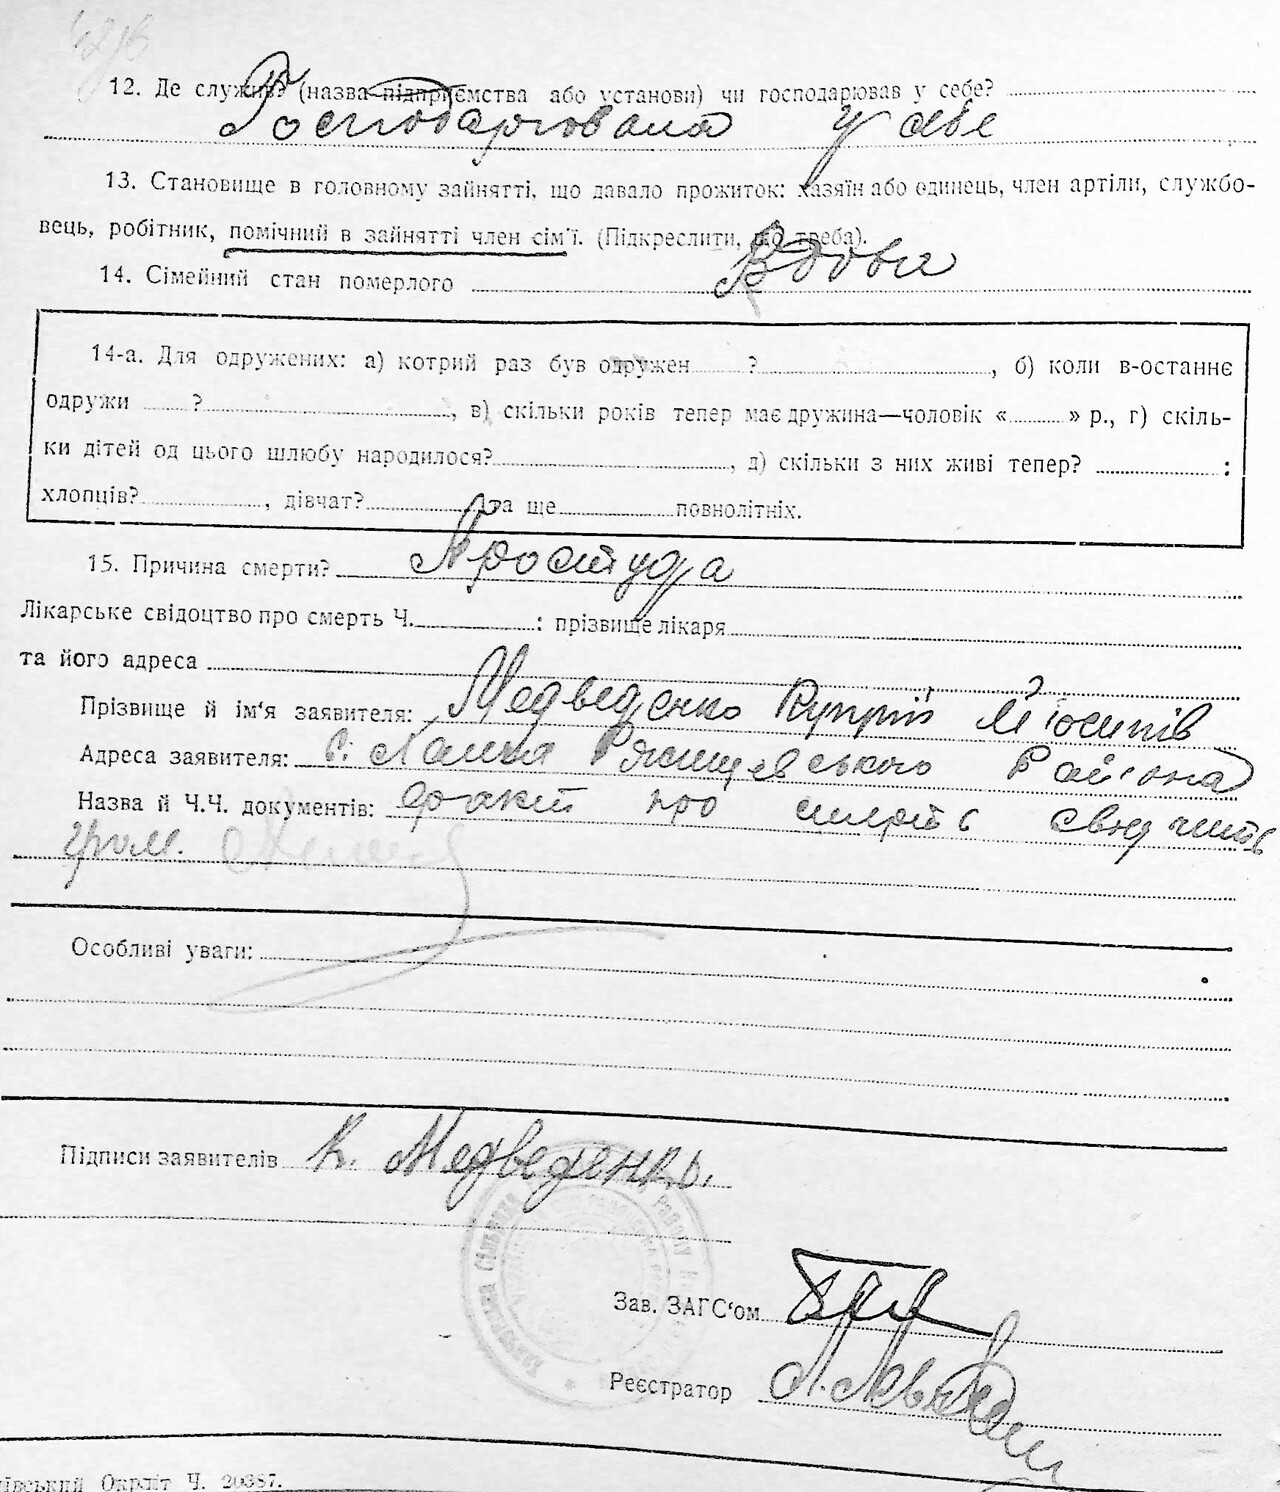 12. Де служив? (назва підприємства або установи) чи господарював у себе?
Господарювала у себе
13. Становище в головному зайнятті, що давало прожиток: хазяїн або одинець, член артіли, службо-
вець, робітник, помічний в зайнятті член сім'ї. (Підкреслити, що треба).
14. Сімейний стан померлого Вдова
14-а. Для одружених: а) котрий раз був одружен ? , б) коли в-останнє
одружи ? , в) скільки років тепер має дружина—чоловік « » р., г) скіль-
ки дітей од цього шлюбу народилося? , д) скільки з них живі тепер? :
хлопців? , дівчат? та ще повнолітніх.
15. Причина смерти? Простуда
Лікарське свідоцтво про смерть Ч. : прізвище лікаря
та його адреса
Прізвище й ім'я заявителя: Медведенко Купрій Йосипів
Адреса заявителя: с. Ржищевського Района
Назва й Ч.Ч. документів: факт про смерть свидчить
гром.
Особливі уваги:
Підписи заявителів К. Медведенко.
Зав. ЗАГС'ом
Реєстратор
ївський Окрліт Ч. 20387.